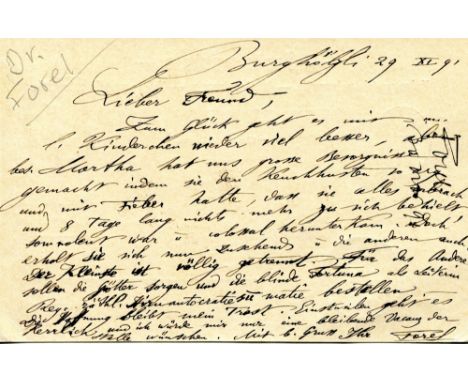 Dr.
Forel
Burghölzli 29 XI 91
Lieber Freund,
Zum Glück geht es mit
l. Kinderchen wieder viel besser,
bes. Martha hat uns grosse Besorgnisse
gemacht indem sie den Keuchhusten so
und mit Fieber hatte, dass sie alles erbrach
und 8 Tage lang nichts mehr zu sich behielt
war & colossal herunterkam. Doch
erholt sie sich nun zusehends & die anderen auch
Der Kleinste ist völlig getrennt. Für das Andere
sollen die Götter sorgen und die blinde Fortuna als Leiterin
bestellen
Die Hoffnung bleibt mein Trost. Einstweilen geht es
herrlich und ich würde mir nur eine bleibende Vacanz der
Stelle wünschen. Mit b. Gruss Ihr Forel